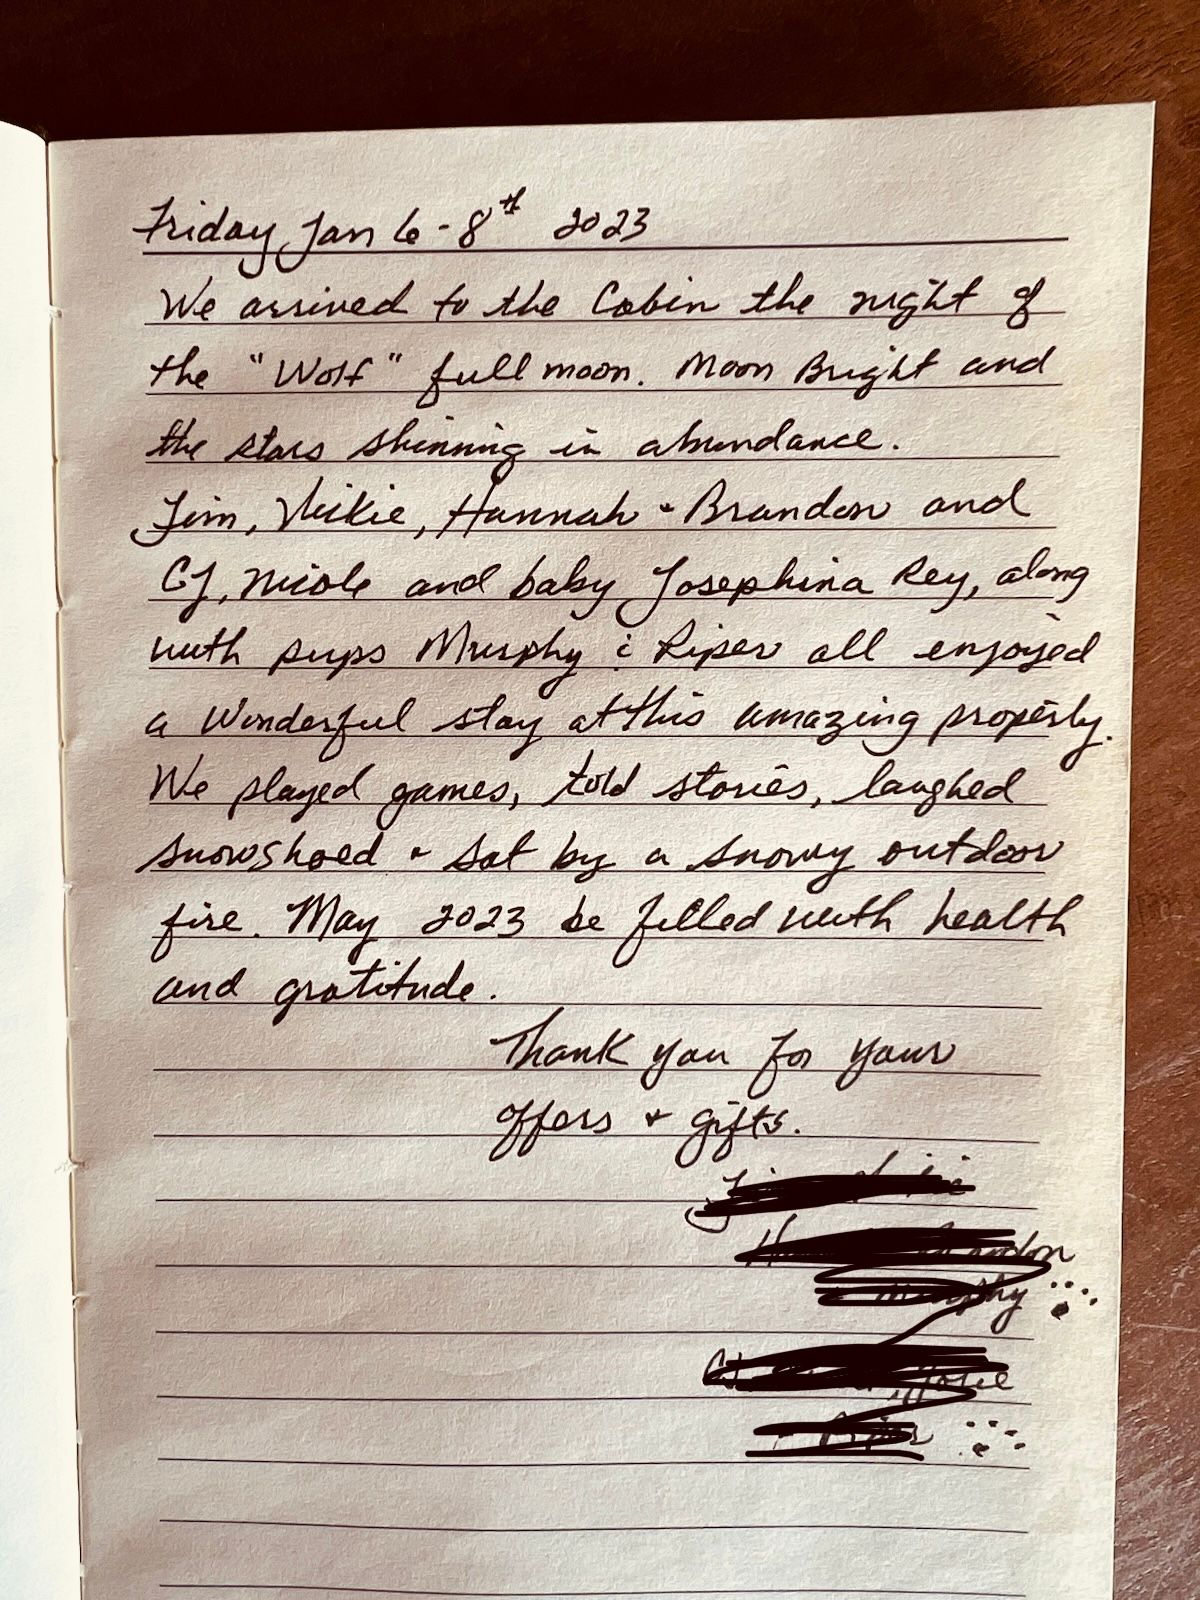 Friday Jan 6-8th 2023
We arrived to the Cabin the night of
the "Wolf" full moon. Moon Bright and
the stars shinning in abundance.
Jim, Vickie, Hannah + Brandon and
CJ, Nicole and baby Josephina Rey, along
with pups Murphy & Piper all enjoyed
a wonderful stay at this amazing property.
We played games, told stories, laughed
snowshoed + sat by a snowy outdoor
fire. May 2023 be filled with health
and gratitude.
Thank you for your
offers + gifts.